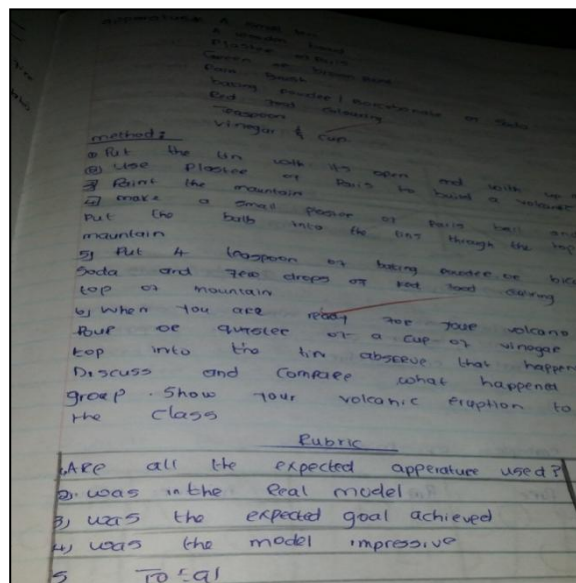 apperatus: A small tin
A wooden board
Plaster of Paris
Green or brown Paint
Paint Brush
baking powder / Bicarbonate of Soda
Red food colouring
Teaspoon
vinegar & cup
method:
① Put the tin with its open end with up
② Use Plaster of Paris to build a volcano
③ Paint the mountain
④ make a small plaster of Paris ball and
Put the balls into the tins through the top
mountain
5) Put 4 teaspoon of baking powder or bica
Soda and few drops of red food coloring
top of mountain
6) When you are ready for your volcano
Pour or quarter of a cup of vinegar
top into the tin abserve that happen
Discuss and compare what happened
group. Show your volcanic eruption to
the class
Rubric
1, ARe all the expected apperature used?
2. was in the Real model
3) was the expected goal achieved
4) was the model impressive
5 Total